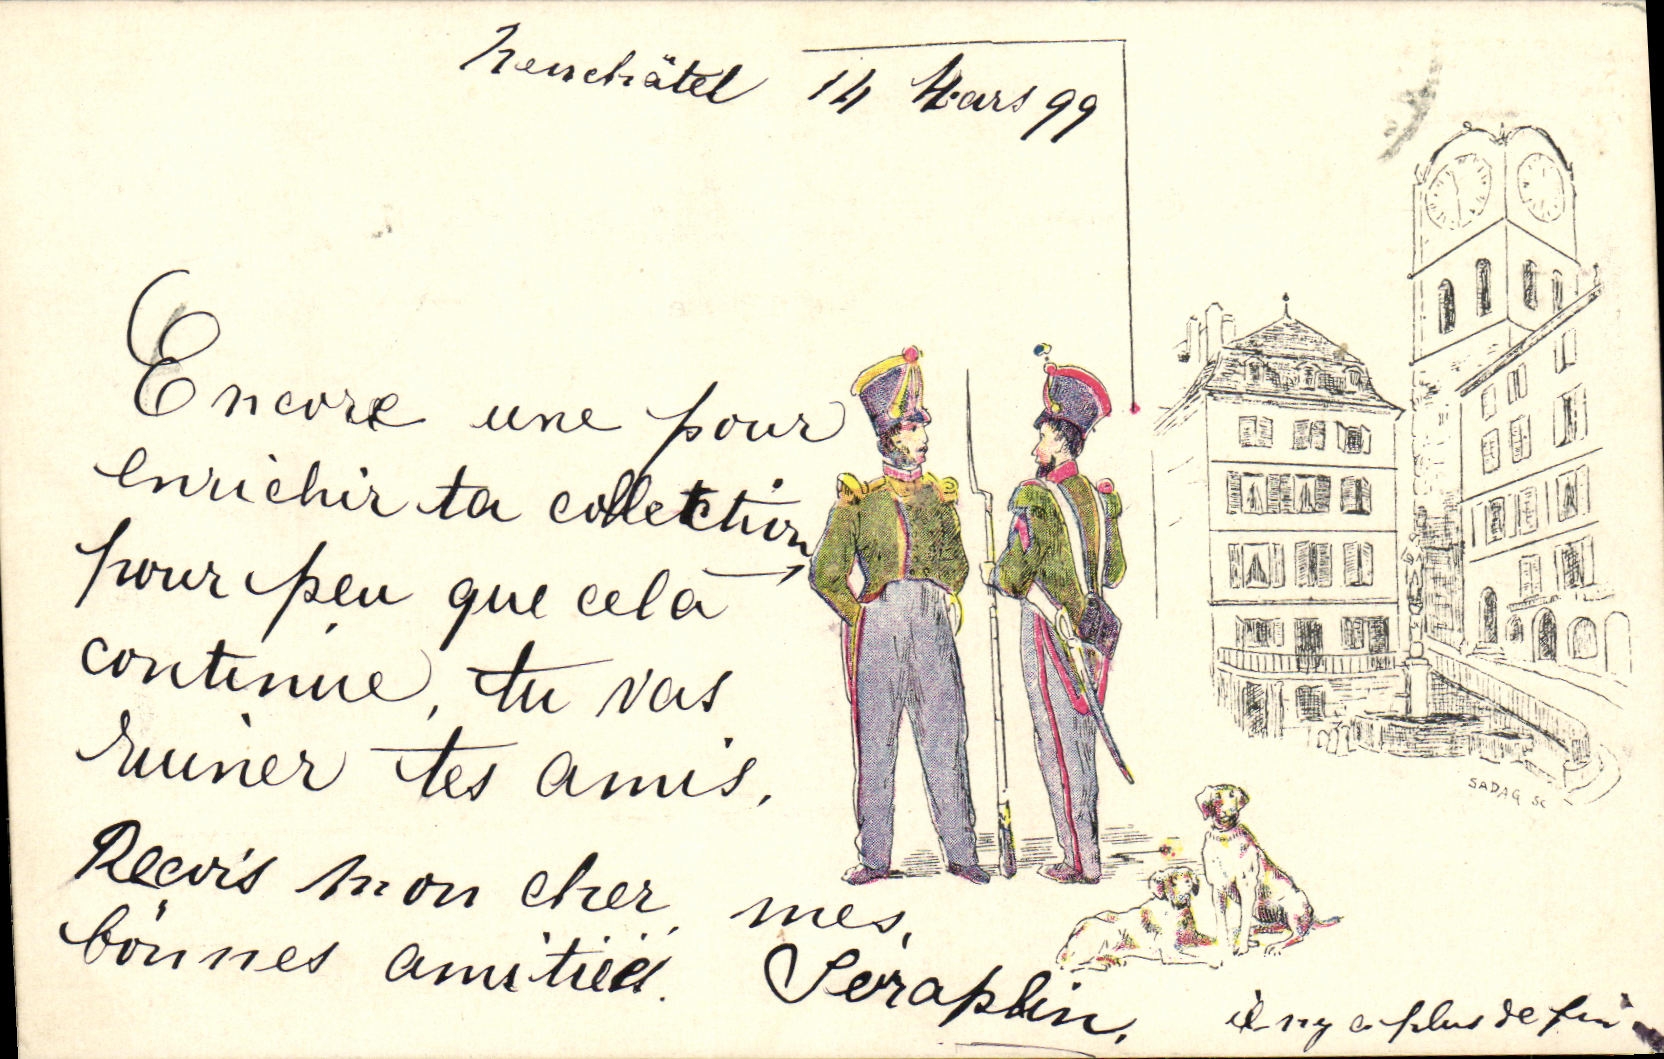 Neuchâtel 14 Mars 99
Encore une pour
enrichir ta collection
pour peu que celà
continue, tu vas
ruiner tes amis.
Reçois mon cher, mes,
bonnes amitiés. Séraphin,
il n'y a plus de fin
SADAG SC